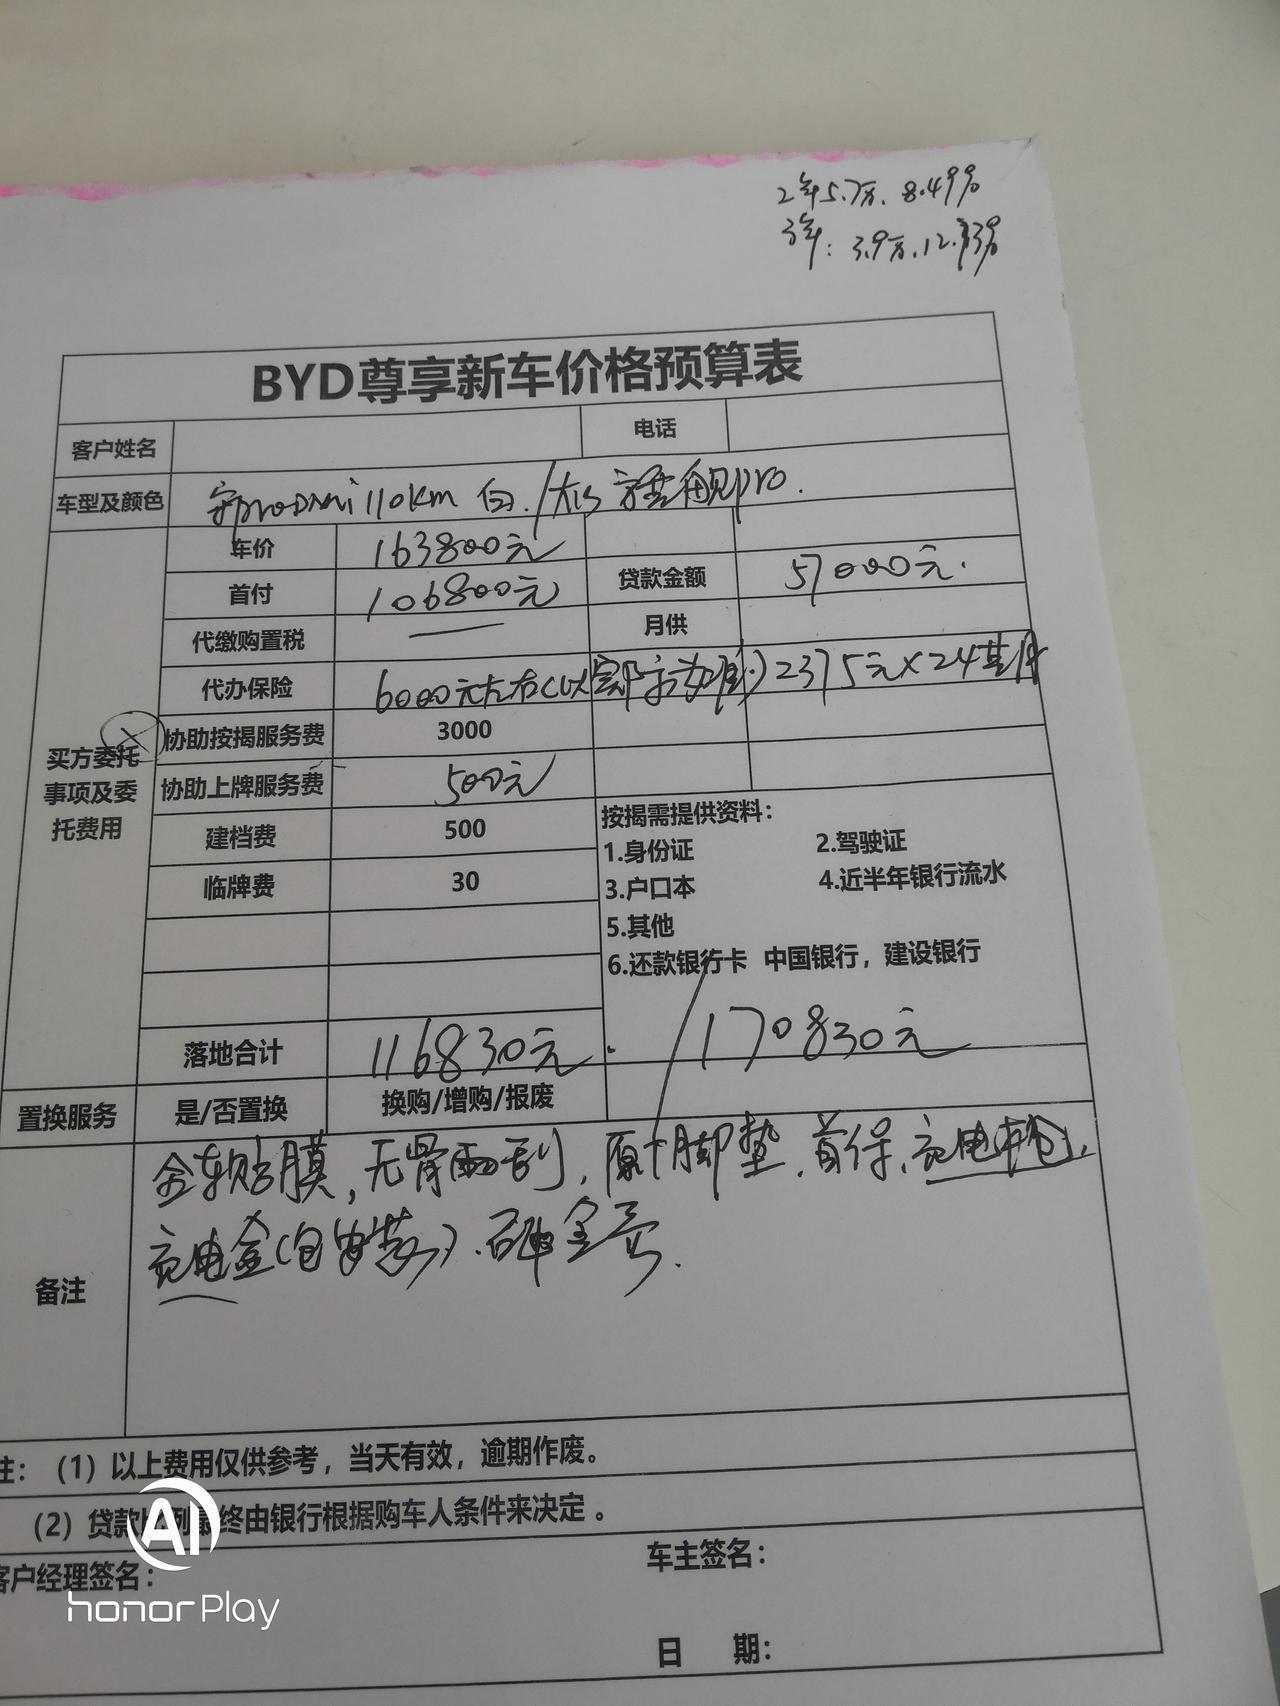 2年5.7万. 8.49%
3年: 3.9万.12.
BYD尊享新车价格预算表
客户姓名 电话
车型及颜色 宋proDMi 110km 白. pro.
车价 163800元
首付 106800元 贷款金额 57000元.
代缴购置税 — 月供
代办保险 6000元左右(以实际为准) 2375元×24期
买方委托事项及委托费用
协助按揭服务费 3000
协助上牌服务费 500元
建档费 500
临牌费 30
按揭需提供资料:
1.身份证 2.驾驶证
3.户口本 4.近半年银行流水
5.其他
6.还款银行卡 中国银行，建设银行
落地合计 116830元. / 170830元
置换服务 是/否置换 换购/增购/报废
备注 全车贴膜, 无骨雨刮, 原厂脚垫. 首保. 充电枪.
充电盒(包安装).
注:（1）以上费用仅供参考，当天有效，逾期作废。
（2）贷款比例最终由银行根据购车人条件来决定。
客户经理签名: 车主签名:
日 期:
AI
honor Play